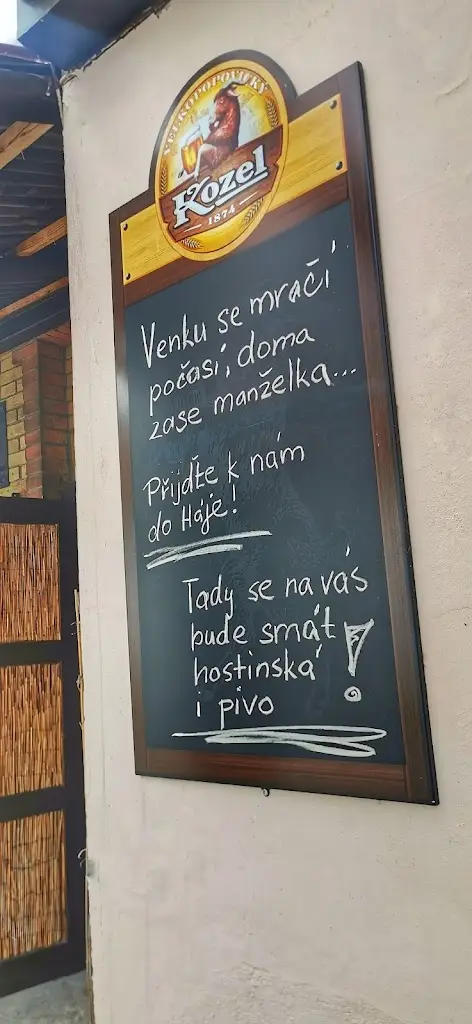 VELKOPOPOVICKÝ
Kozel
1874
Venku se mračí
počasí, doma
zase manželka...
Přijďte k nám
do Háje!
Tady se na vás
bude smát
hostinská
i pivo!